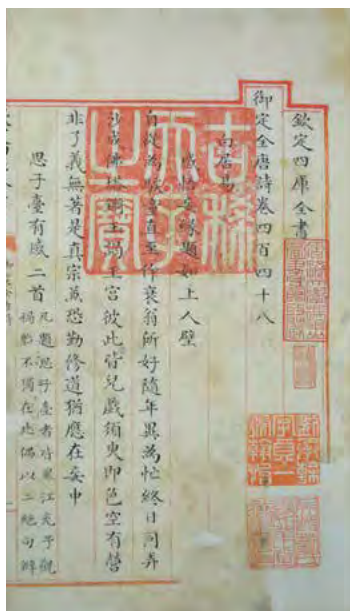 欽定四庫全書
御定全唐詩卷四百四十八
白居易
感悟妄緣題如上人壁
自從為騃童直至作衰翁所好隨年異為忙終日同弄
沙成佛塔鏘玉謁王宮彼此皆兒戲須臾即色空有營
非了義無著是真宗兼恐勤修道猶應在妄中
思子臺有感二首
凡題思子臺者皆罪江充予觀
禍胎不獨在此偶以二絕句辯
古稀
天子
之寶
劉承幹
字貞一
號翰怡